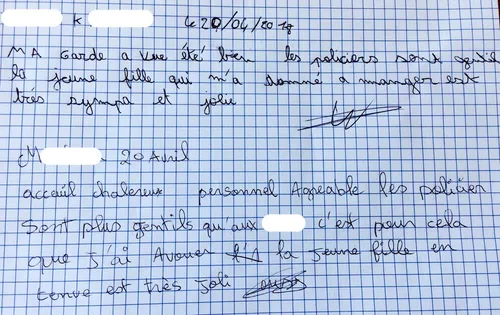 K. le 20/04/2018
MA Garde a vue été bien les policiers sont gentil
la jeune fille qui m'a donné a manger est
très sympa et jolie
M 20 Avril
acceuil chalereux personnel Agréable les policier
sont plus gentils qu'aux c'est pour cela
que j'ai Avouer la jeune fille en
tenue est très joli